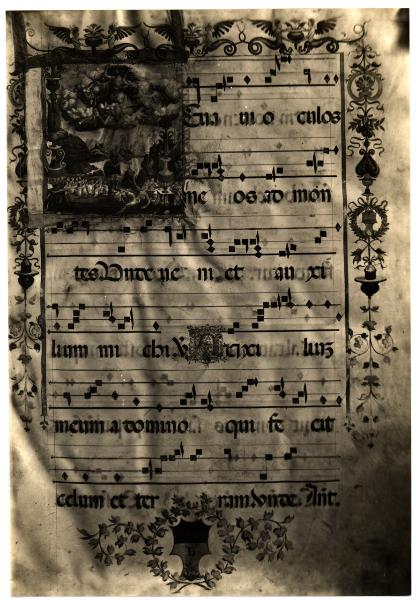 Evavi oculos
meos ad mon
tes Unde ve ni et auxi
lium michi V Auxi luiz
meum a domino qui fe cit
celum et ter ram Unde. Ant.